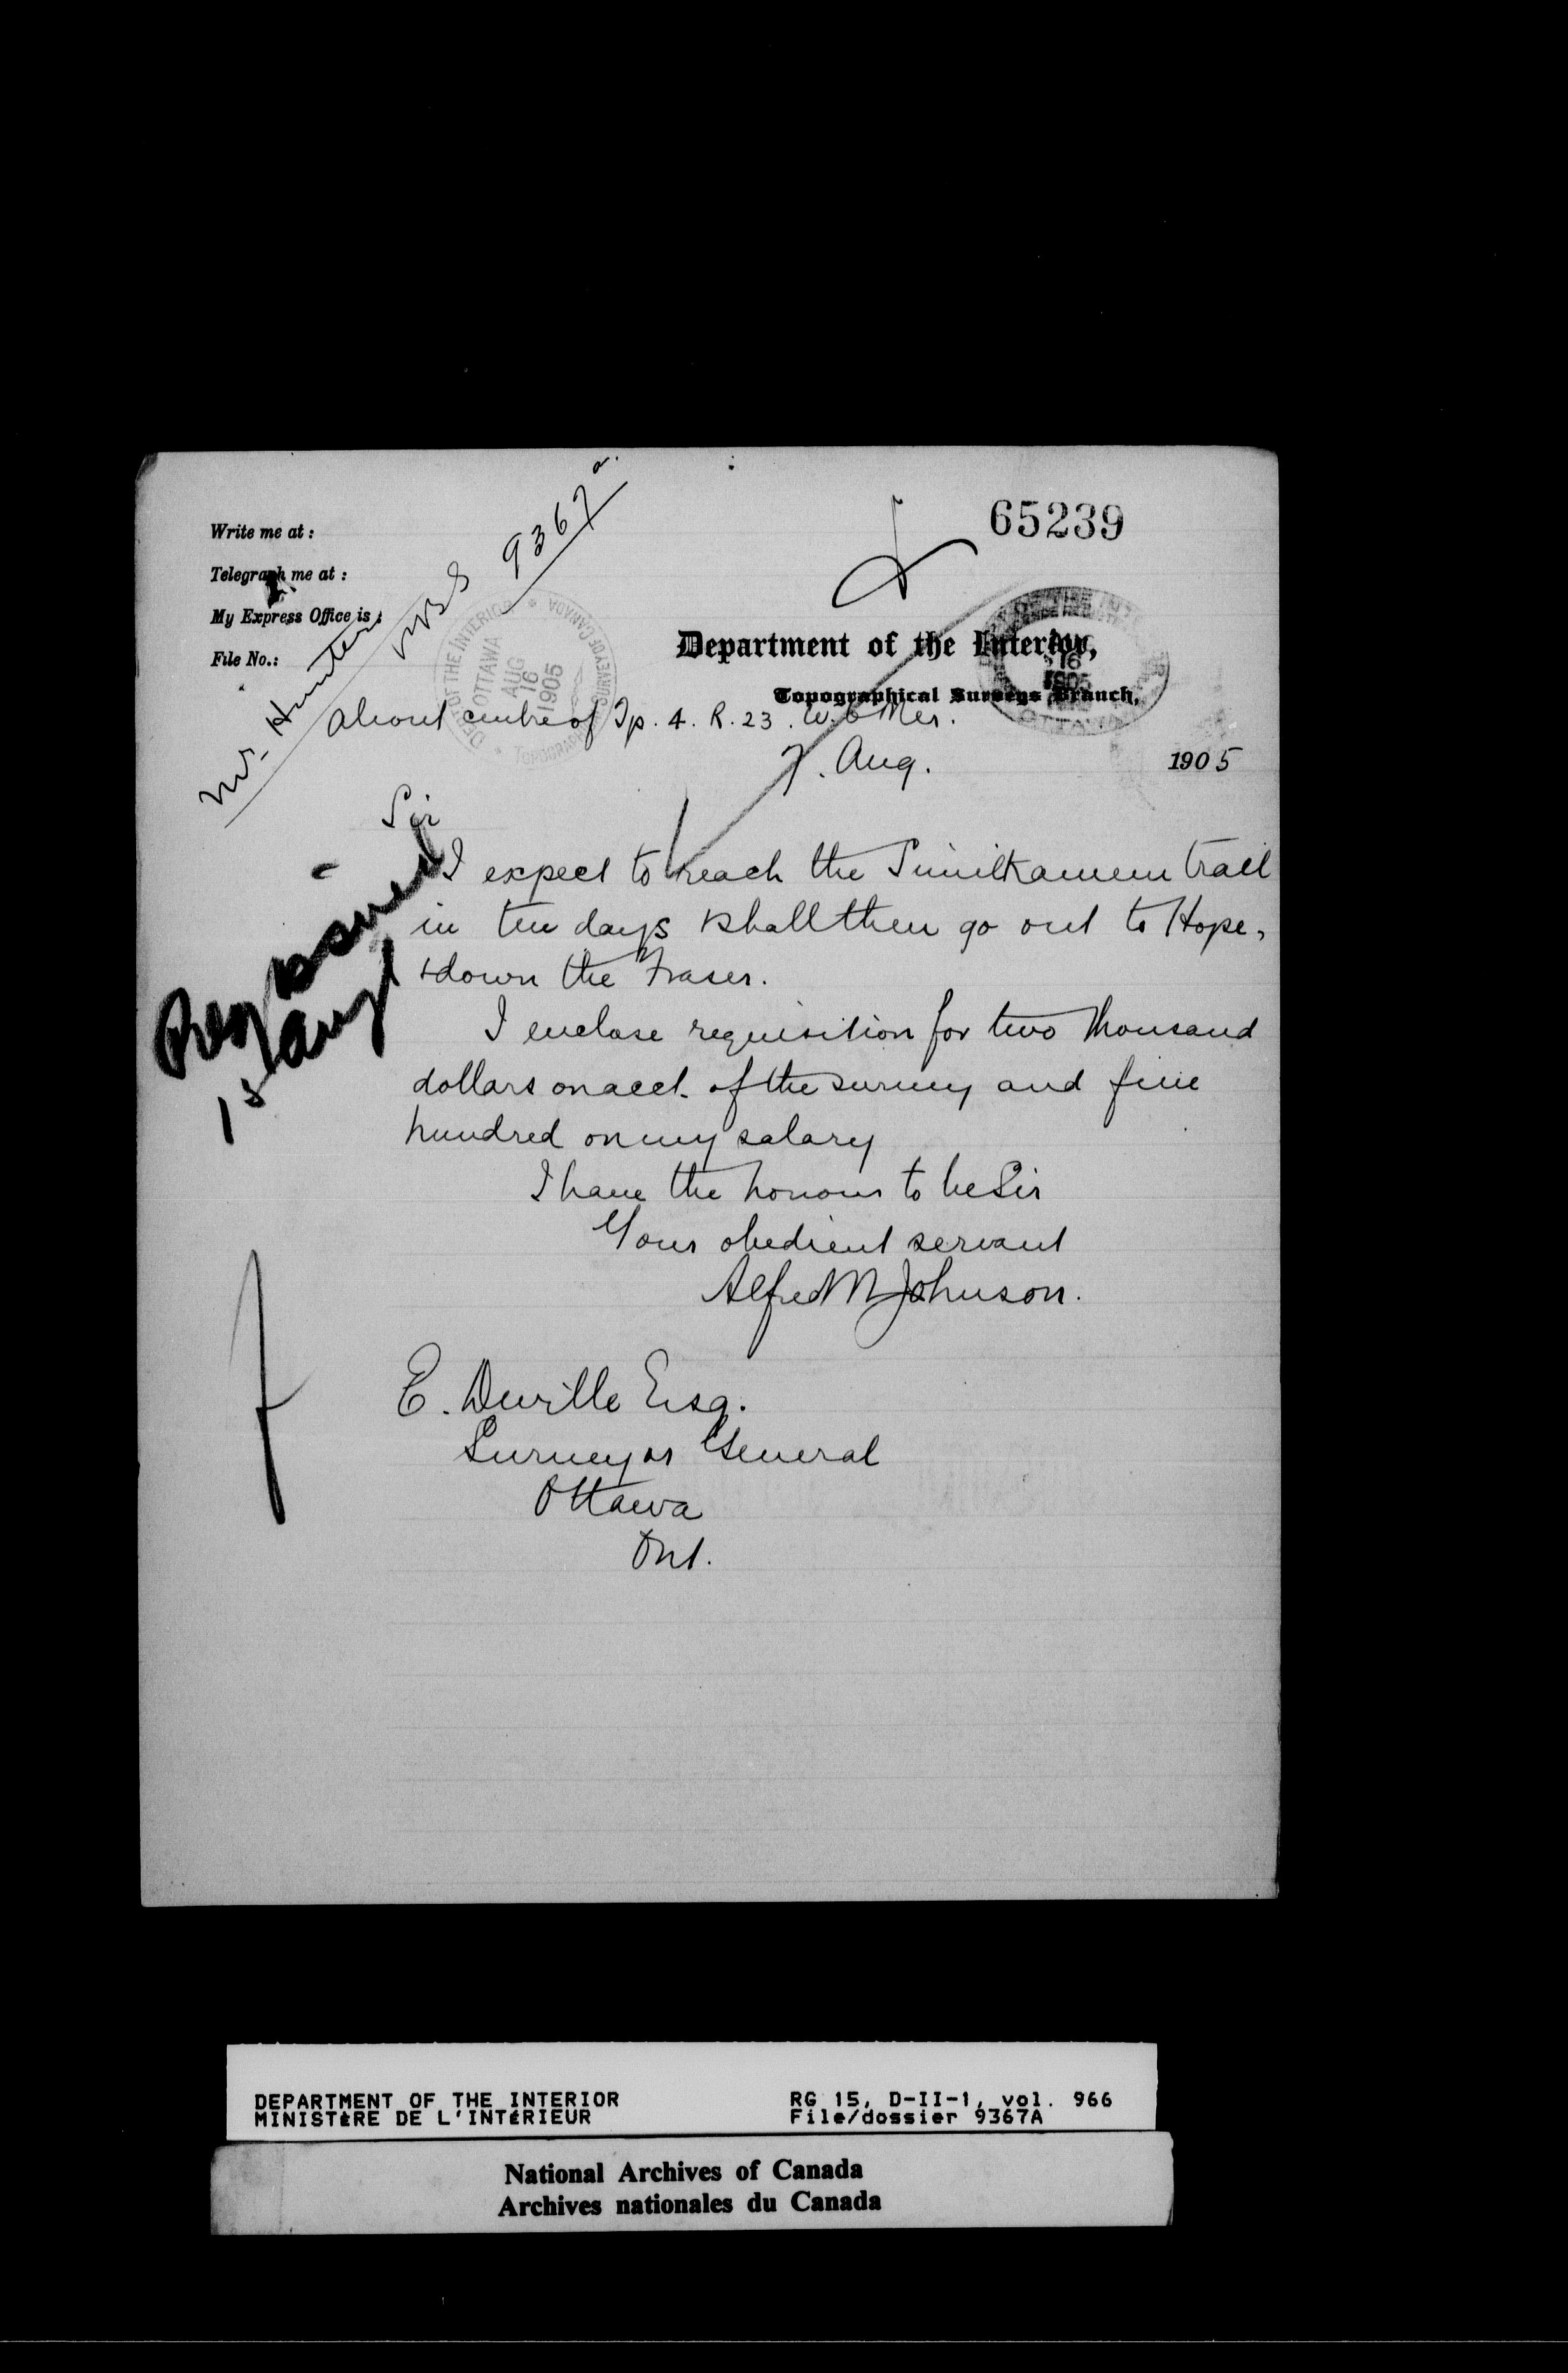 65239
Write me at :
Telegraph me at :
My Express Office is :
File No.:
Mr. Hunter
9367a
DEPT OF THE INTERIOR
OTTAWA
AUG
16
1905
TOPOGRAPHICAL SURVEY OF CANADA
Department of the Interior,
Topographical Surveys Branch,
16
1905
OTTAWA
About centre of Tp. 4. R. 23. W. 6 Mer.
7. Aug. 1905
Sir
I expect to reach the Similkameen trail
in ten days & shall then go out to Hope,
& down the Fraser.
I enclose requisition for two thousand
dollars on acct. of the survey and five
hundred on my salary
I have the honour to be Sir
Your obedient servant
Alfred M Johnson.
E. Deville Esq.
Surveyor General
Ottawa
Ont.
DEPARTMENT OF THE INTERIOR
MINISTÈRE DE L'INTÉRIEUR
RG 15, D-II-1, vol. 966
File/dossier 9367A
National Archives of Canada
Archives nationales du Canada